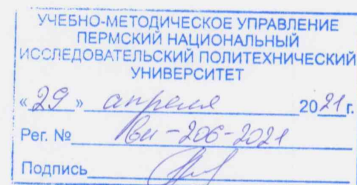 УЧЕБНО-МЕТОДИЧЕСКОЕ УПРАВЛЕНИЕ
ПЕРМСКИЙ НАЦИОНАЛЬНЫЙ
ИССЛЕДОВАТЕЛЬСКИЙ ПОЛИТЕХНИЧЕСКИЙ
УНИВЕРСИТЕТ
«29» апреля 2021 г.
Рег. № -206-2021
Подпись